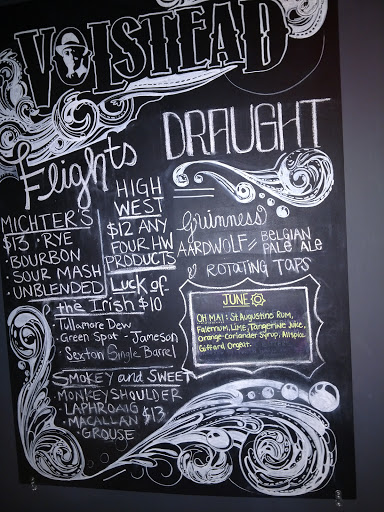 VOLSTEAD
Flights
DRAUGHT
MICHTER'S
$13 · RYE
· BOURBON
· SOUR MASH
· UNBLENDED
HIGH
WEST
$12 ANY
FOUR HW
PRODUCTS
Luck of
the Irish $10
· Tullamore Dew
· Green Spot - Jameson
· Sexton Single Barrel
SMOKEY and SWEET
· MONKEY SHOULDER
· LAPHROAIG
· MACALLAN $13
· GROUSE
Guinness
AARDWOLF // BELGIAN
PALE ALE
ROTATING TAPS
JUNE
OH MAI: St. Augustine Rum,
Falernum, Lime, Tangerine Juice,
Orange-Coriander Syrup, Allspice,
Giffard Orgeat.